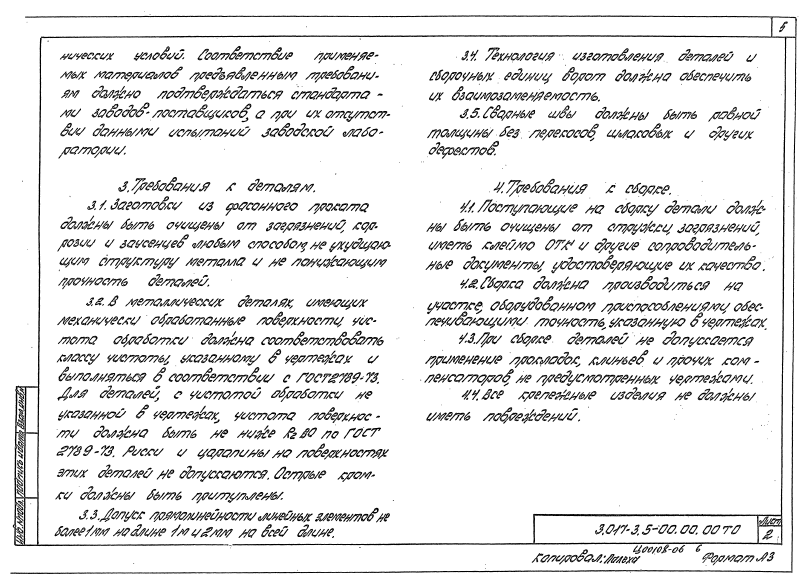 5
нических условий. Соответствие применяе-
мых материалов предъявленным требовани-
ям должно подтверждаться стандарта-
ми заводов-поставщиков, а при их отсутст-
вии данными испытаний заводской лабо-
ратории.
3. Требования к деталям.
3.1. Заготовки из фасонного проката
должны быть очищены от загрязнений, кор-
розии и заусенцев любым способом, не ухудшаю-
щим структуру металла и не понижающим
прочность деталей.
3.2. В металлических деталях, имеющих
механически обработанные поверхности, чис-
тота обработки должна соответствовать
классу чистоты, указанному в чертежах и
выполняться в соответствии с ГОСТ2789-73.
Для деталей, с чистотой обработки не
указанной в чертежах, чистота поверхнос-
ти должна быть не ниже Rz 80 по ГОСТ
2789-73. Риски и царапины на поверхностях
этих деталей не допускаются. Острые кром-
ки должны быть притуплены.
3.3. Допуск прямолинейности линейных элементов не
более 1мм на длине 1м и 2мм на всей длине.
3.4. Технология изготовления деталей и
сборочных единиц ворот должна обеспечить
их взаимозаменяемость.
3.5. Сварные швы должны быть равной
толщины без перекосов, шлаковых и других
дефектов.
4. Требования к сборке.
4.1. Поступающие на сборку детали долж-
ны быть очищены от стружки, загрязнений,
иметь клеймо ОТК и другие сопроводитель-
ные документы, удостоверяющие их качество.
4.2. Сборка должна производиться на
участке, оборудованном приспособлениями, обес-
печивающими точность, указанную в чертежах.
4.3. При сборке деталей не допускается
применение прокладок, клиньев и прочих ком-
пенсаторов, не предусмотренных чертежами.
4.4. Все крепежные изделия не должны
иметь повреждений.
Инв.№подл. Подпись и дата Взам.инв.№
3.017-3.5-00.00.00 ТО
Лист
2
Ц00108-06 6
Копировал: Формат А3